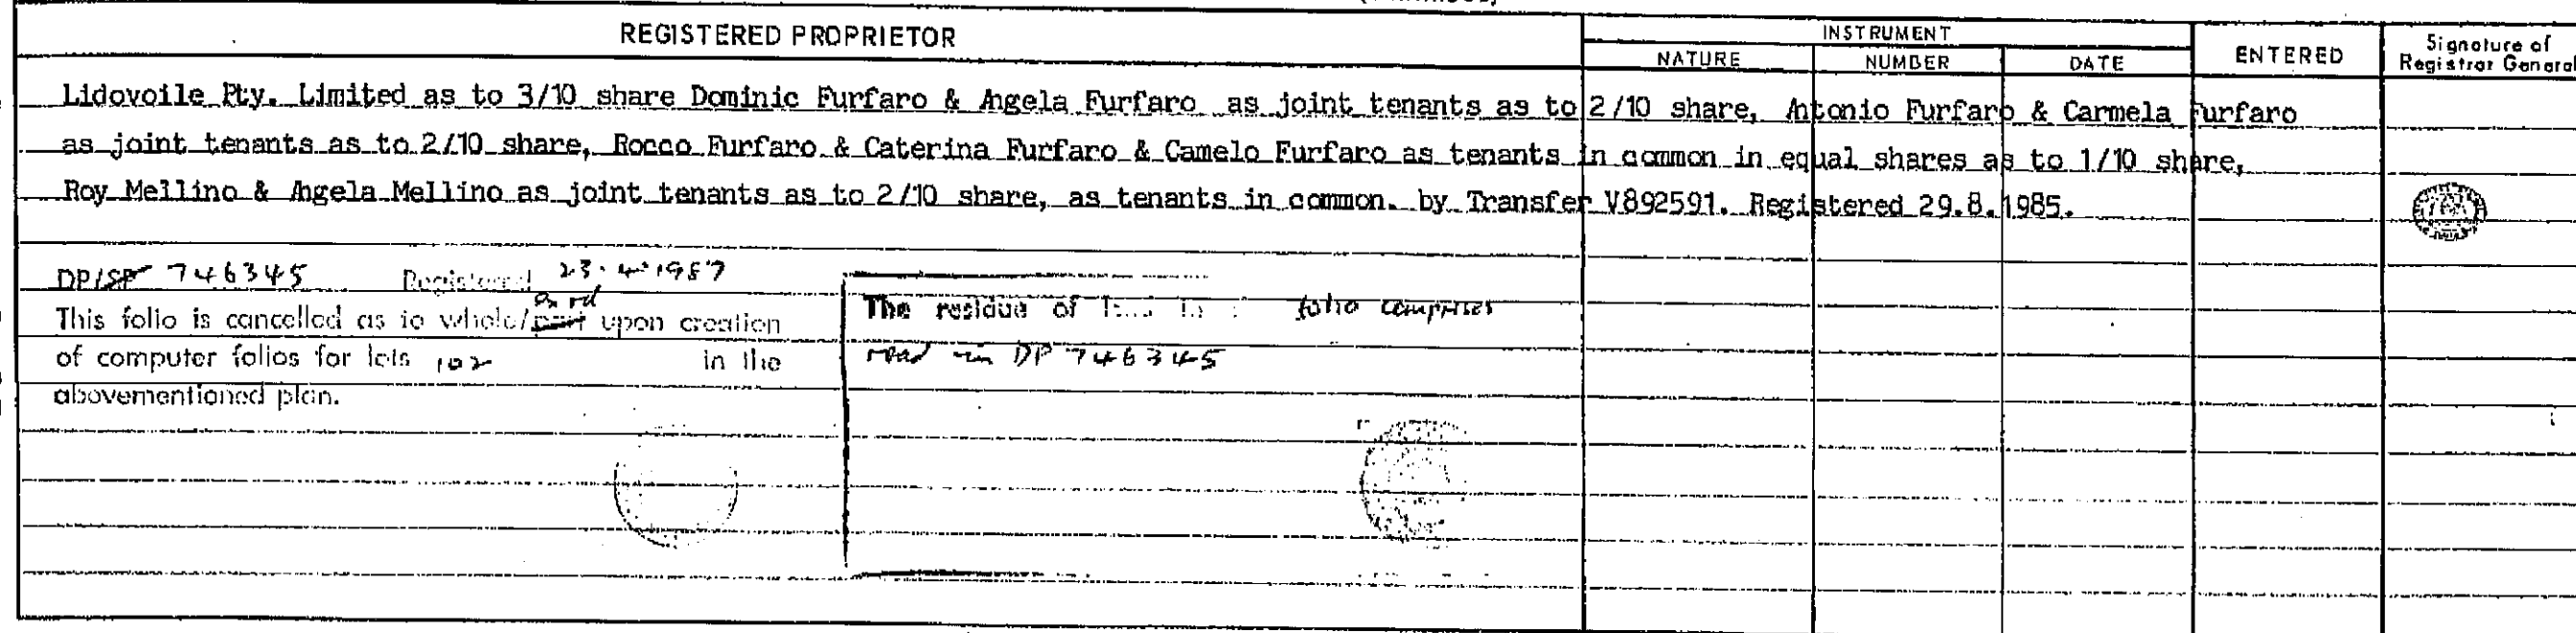 REGISTERED PROPRIETOR
INSTRUMENT
NATURE
NUMBER
DATE
ENTERED
Signature of
Registrar General
Lidovoile Pty. Limited as to 3/10 share Dominic Furfaro & Angela Furfaro as joint tenants as to 2/10 share, Antonio Furfaro & Carmela Furfaro
as joint tenants as to 2/10 share, Rocco Furfaro & Caterina Furfaro & Camelo Furfaro as tenants in common in equal shares as to 1/10 share,
Roy Mellino & Angela Mellino as joint tenants as to 2/10 share, as tenants in common. by Transfer V892591. Registered 29.8.1985.
DP/SP 746345 Registered 23.4.1987
This folio is cancelled as to whole/part upon creation
of computer folios for lots 102 in the
abovementioned plan.
The residue of folio comprises
road in DP 746345